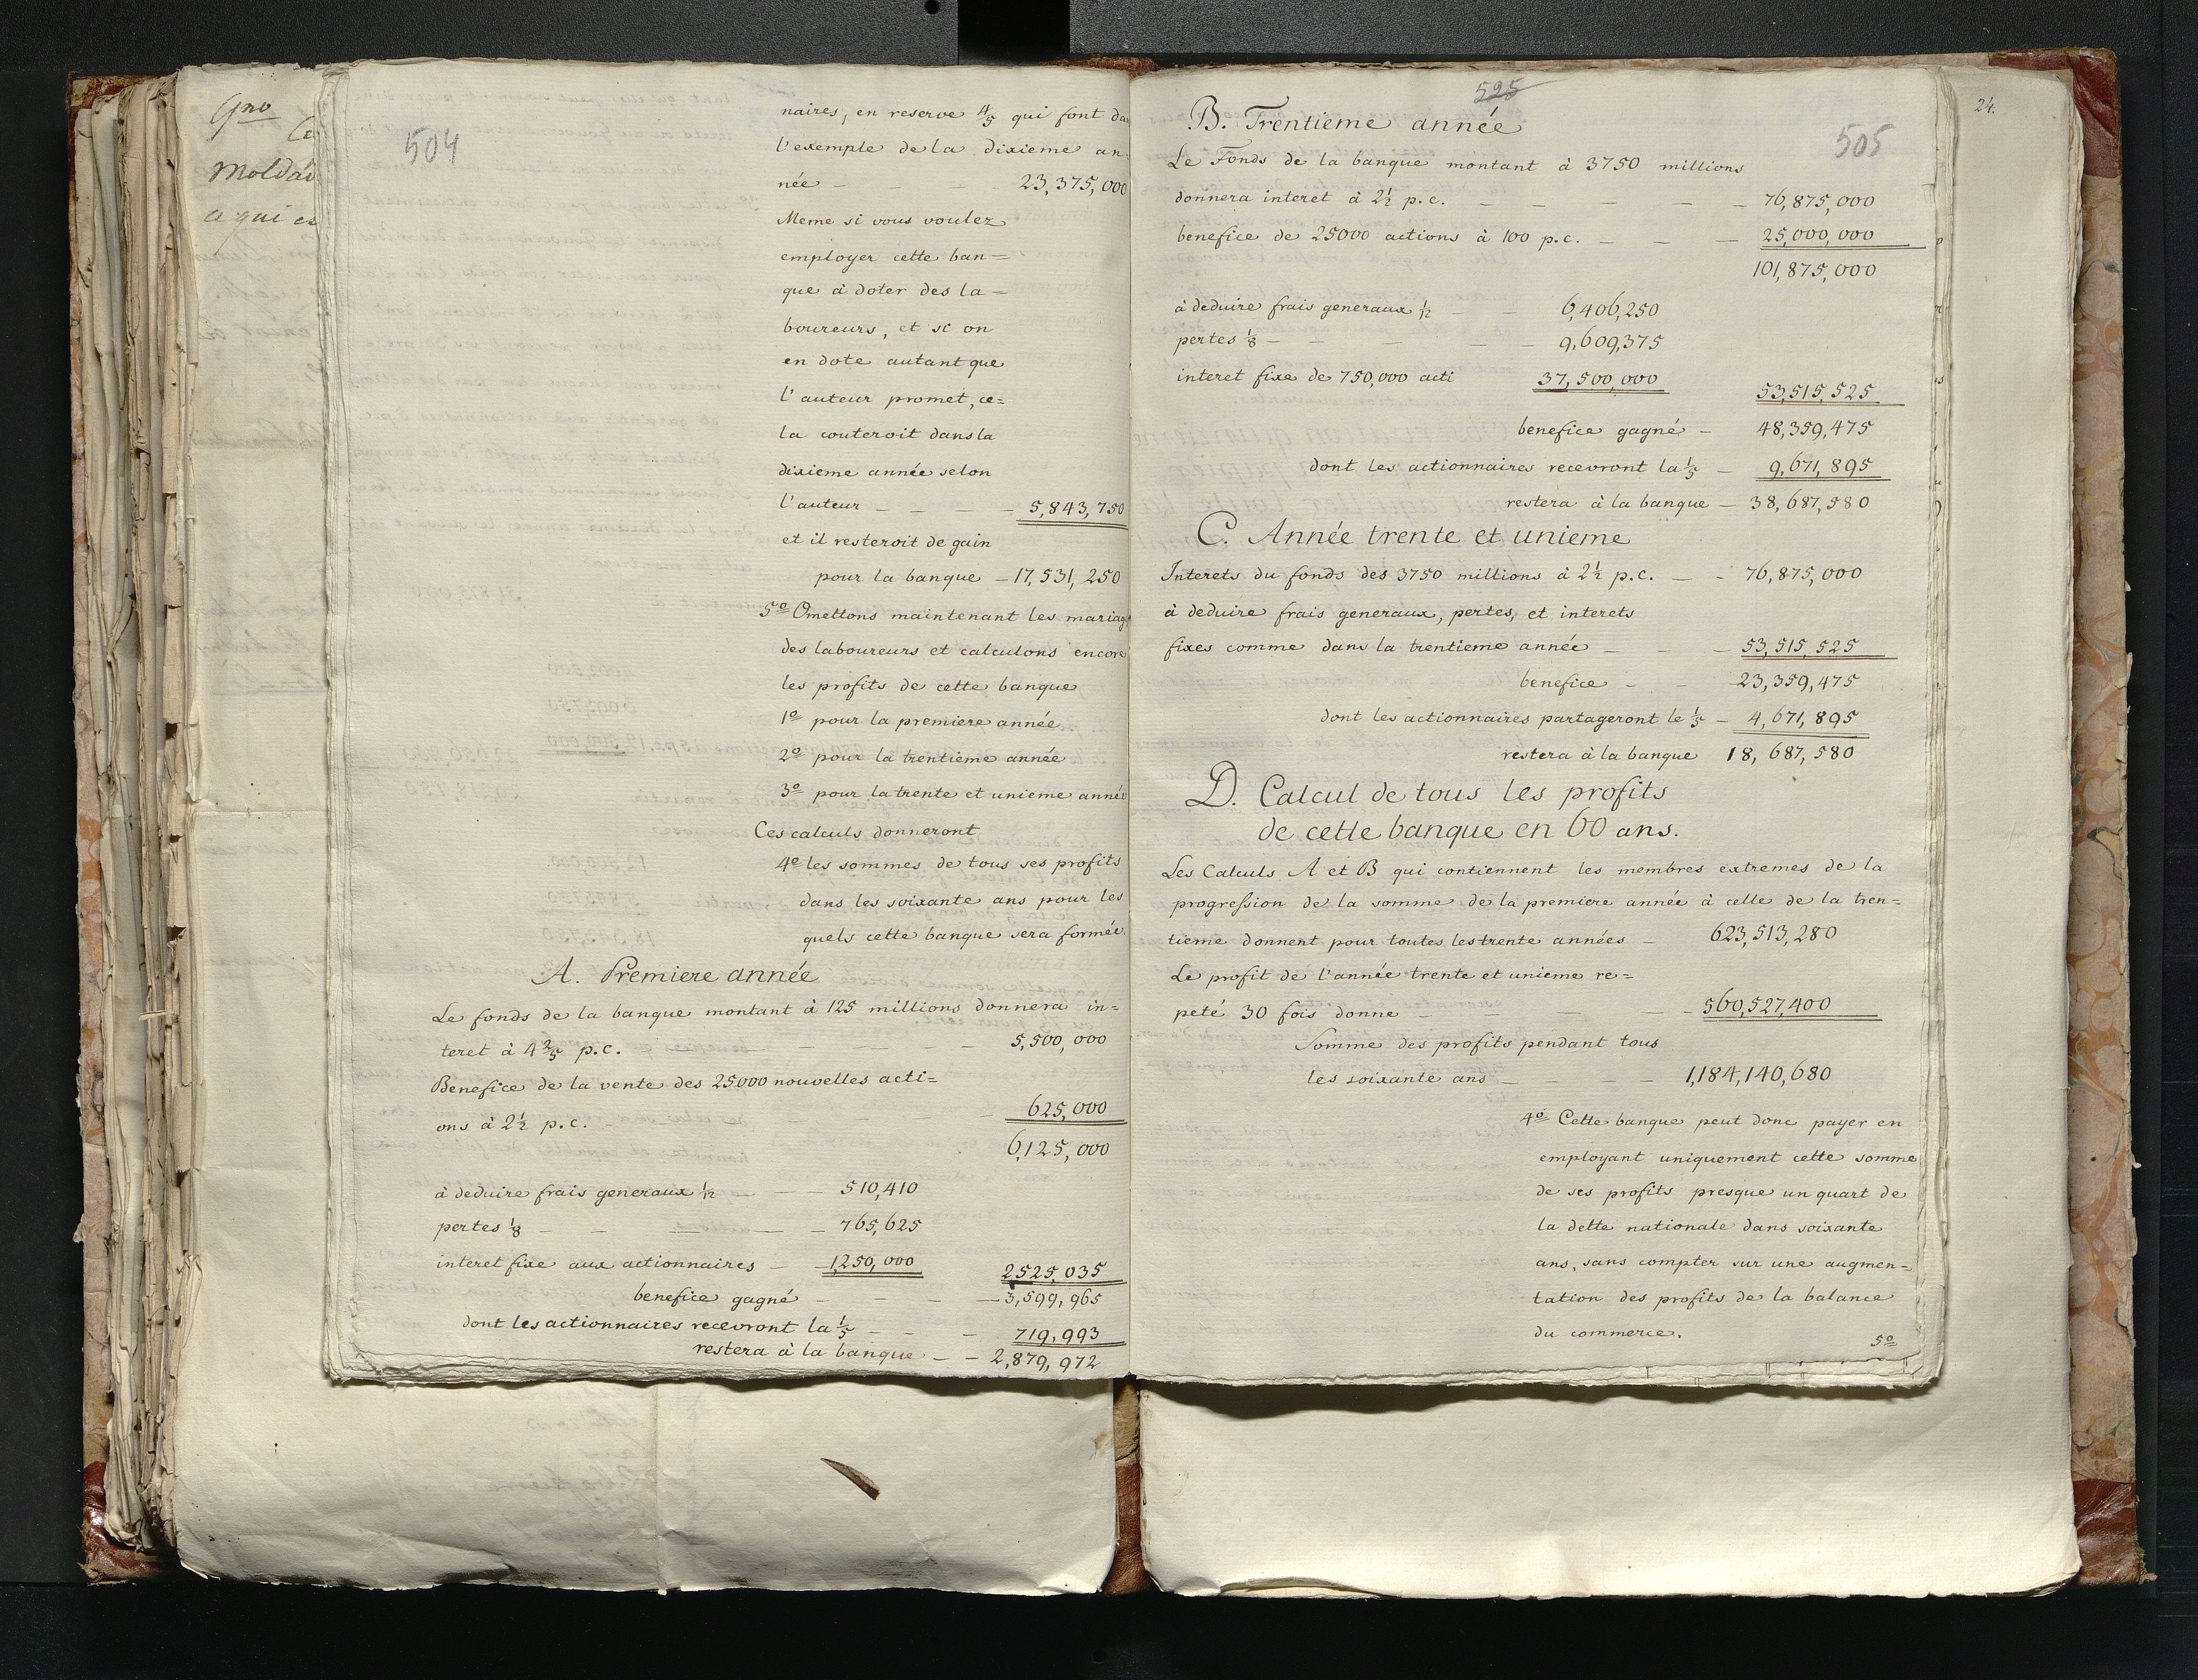 504
naires, en reserve 4/5 qui font da
l'exemple de la dixieme an-
née - - - - 23,375,000
Meme si vous voulez
employer cette ban=
que à doter des la=
boureurs, et si on
en dote autant que
l'auteur promet, ce=
la couteroit dans la
dixieme année selon
l'auteur - - - - 5,843,750
et il resteroit de gain
pour la banque - 17,531,250
5º Omettons maintenant les mariag
des laboureurs et calculons encore
les profits de cette banque
1º pour la premiere année
2º pour la trentieme année
3º pour la trente et unieme année
Ces calculs donneront
4º les sommes de tous ses profits
dans les soixante ans pour les
quels cette banque sera formée.
A. Premiere année
Le fonds de la banque montant à 125 millions donnera in=
teret à 4 2/5 p.c. - - - - 5,500,000
Benefice de la vente des 25000 nouvelles acti=
ons à 2½ p.c. - - - - 625,000
6,125,000
à deduire frais generaux 1/12 - - 510,410
pertes 1/8 - - - - 765,625
interet fixe aux actionnaires - 1,250,000 2525,035
benefice gagné - - - - 3,599,965
dont les actionnaires recevront la 1/5 - - - 719,993
restera à la banque - - 2,879,972
525
505
B. Trentieme année
Le Fonds de la banque montant à 3750 millions
donnera interet à 2½ p.c. - - - - - 76,875,000
benefice de 25000 actions à 100 p.c. - - - 25,000,000
101,875,000
à deduire frais generaux 1/12 - - 6,406,250
pertes 1/8 - - - - - 9,609,375
interet fixe de 750,000 acti 37,500,000 53,515,525
benefice gagné - 48,359,475
dont les actionnaires recevront la 1/5 - 9,671,895
restera à la banque - 38,687,580
C. Année trente et unieme
Interets du fonds des 3750 millions à 2½ p.c. - - 76,875,000
à deduire frais generaux, pertes, et interets
fixes comme dans la trentieme année - - - 53,515,525
benefice - - - 23,359,475
dont les actionnaires partageront le 1/5 - 4,671,895
restera à la banque 18,687,580
D. Calcul de tous les profits
de cette banque en 60 ans.
Les Calculs A et B qui contiennent les membres extremes de la
progression de la somme de la premiere année à celle de la tren=
tieme donnent pour toutes les trente années - 623,513,280
Le profit de l'année trente et unieme re=
peté 30 fois donne - - - - 560,527,400
Somme des profits pendant tous
les soixante ans - - - - 1,184,140,680
4º Cette banque peut donc payer en
employant uniquement cette somme
de ses profits presque un quart de
la dette nationale dans soixante
ans, sans compter sur une augmen=
tation des profits de la balance
du commerce.
5º
24.